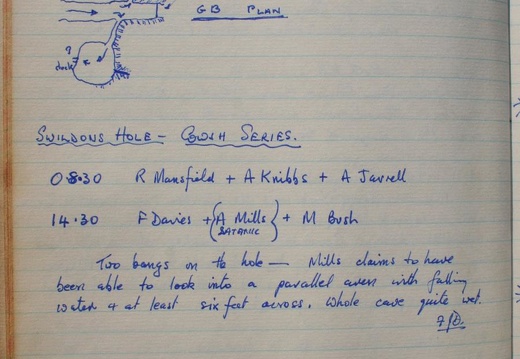 GB PLAN
?
choke
SWILDONS HOLE - COWSH SERIES.
08.30 R Mansfield + A Knibbs + A Jarrell
14.30 F Davies + {A Mills} + M Bush
SATANIC
Two bangs on the hole — Mills claims to have
been able to look into a parallel aven with falling
water & at least six feet across. Whole cave quite wet.